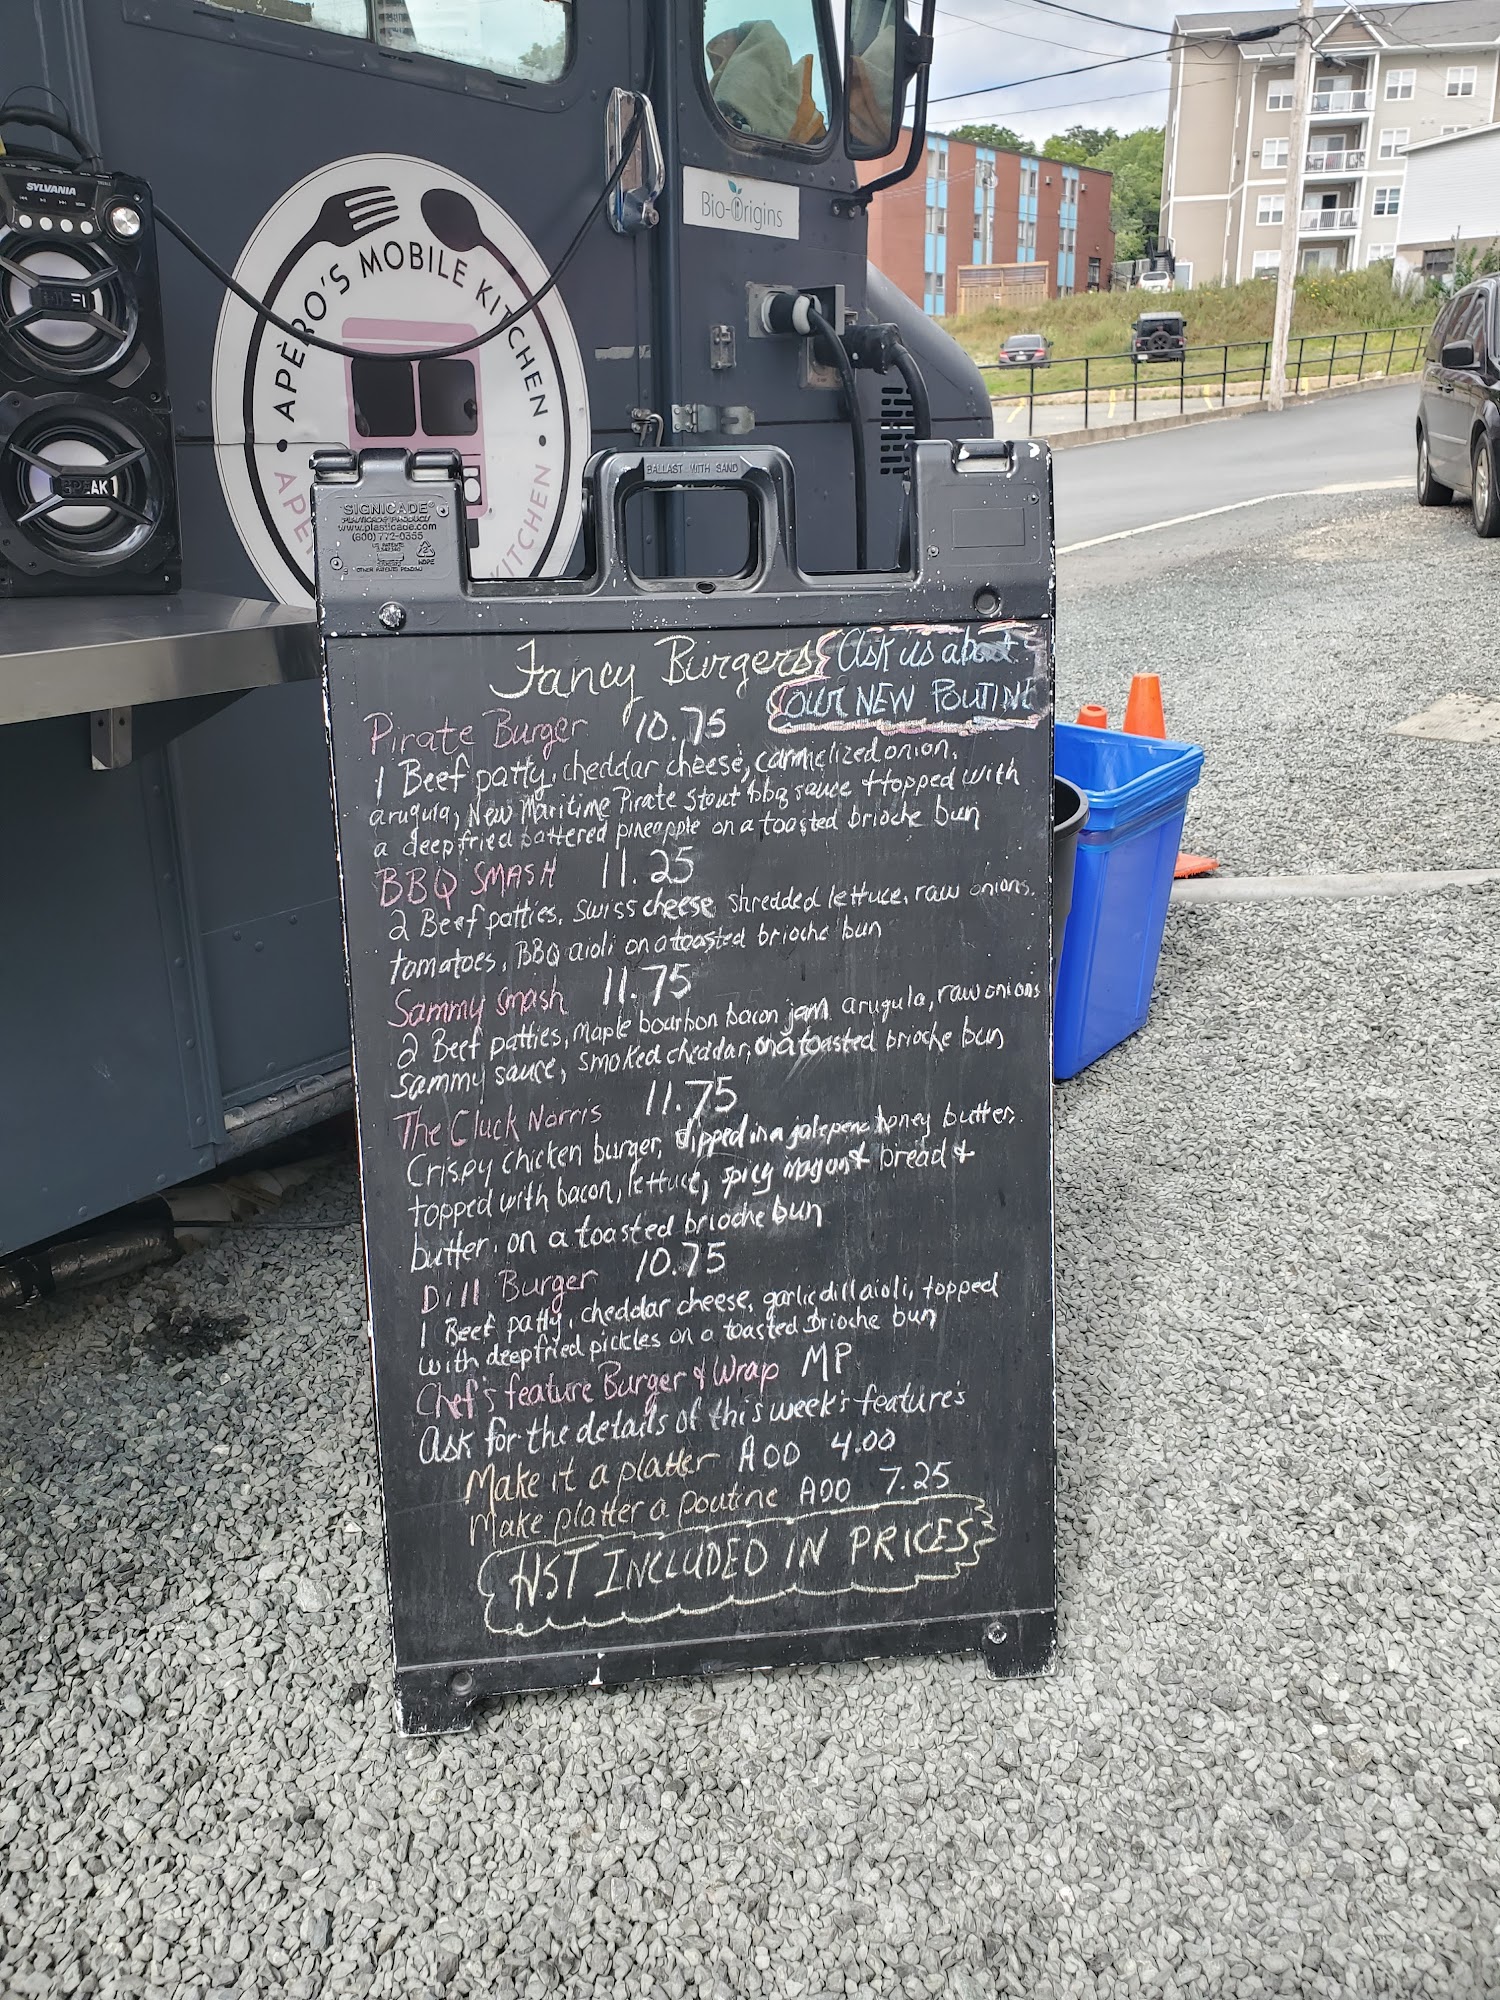 SYLVANIA
HI-FI
SPEAK
APÈRO'S MOBILE KITCHEN
KITCHEN
Bio-Origins
BALLAST WITH SAND
SIGNICADE
PLASTICADE PRODUCTS
www.plasticade.com
(800) 772-0355
OTHER PATENTS PENDING
HDPE
Fancy Burgers
Ask us about
our NEW POUTINE
Pirate Burger 10.75
1 Beef patty, cheddar cheese, carmelized onion,
arugula, New Maritime Pirate Stout bbq sauce + topped with
a deepfried battered pineapple on a toasted brioche bun
BBQ SMASH 11.25
2 Beef patties, Swiss cheese, shredded lettuce, raw onions,
tomatoes, BBQ aioli on a toasted brioche bun
Sammy Smash 11.75
2 Beef patties, Maple bourbon bacon jam, arugula, raw onions
Sammy sauce, smoked cheddar, on a toasted brioche bun
The Cluck Norris 11.75
Crispy chicken burger, dipped in a jalepeno honey butter,
topped with bacon, lettuce, spicy mayo + bread +
butter, on a toasted brioche bun
Dill Burger 10.75
1 Beef patty, cheddar cheese, garlic dill aioli, topped
with deepfried pickles on a toasted brioche bun
Chef's feature Burger & Wrap MP
Ask for the details of this week's feature's
Make it a platter ADD 4.00
Make platter a poutine ADD 7.25
HST INCLUDED IN PRICES